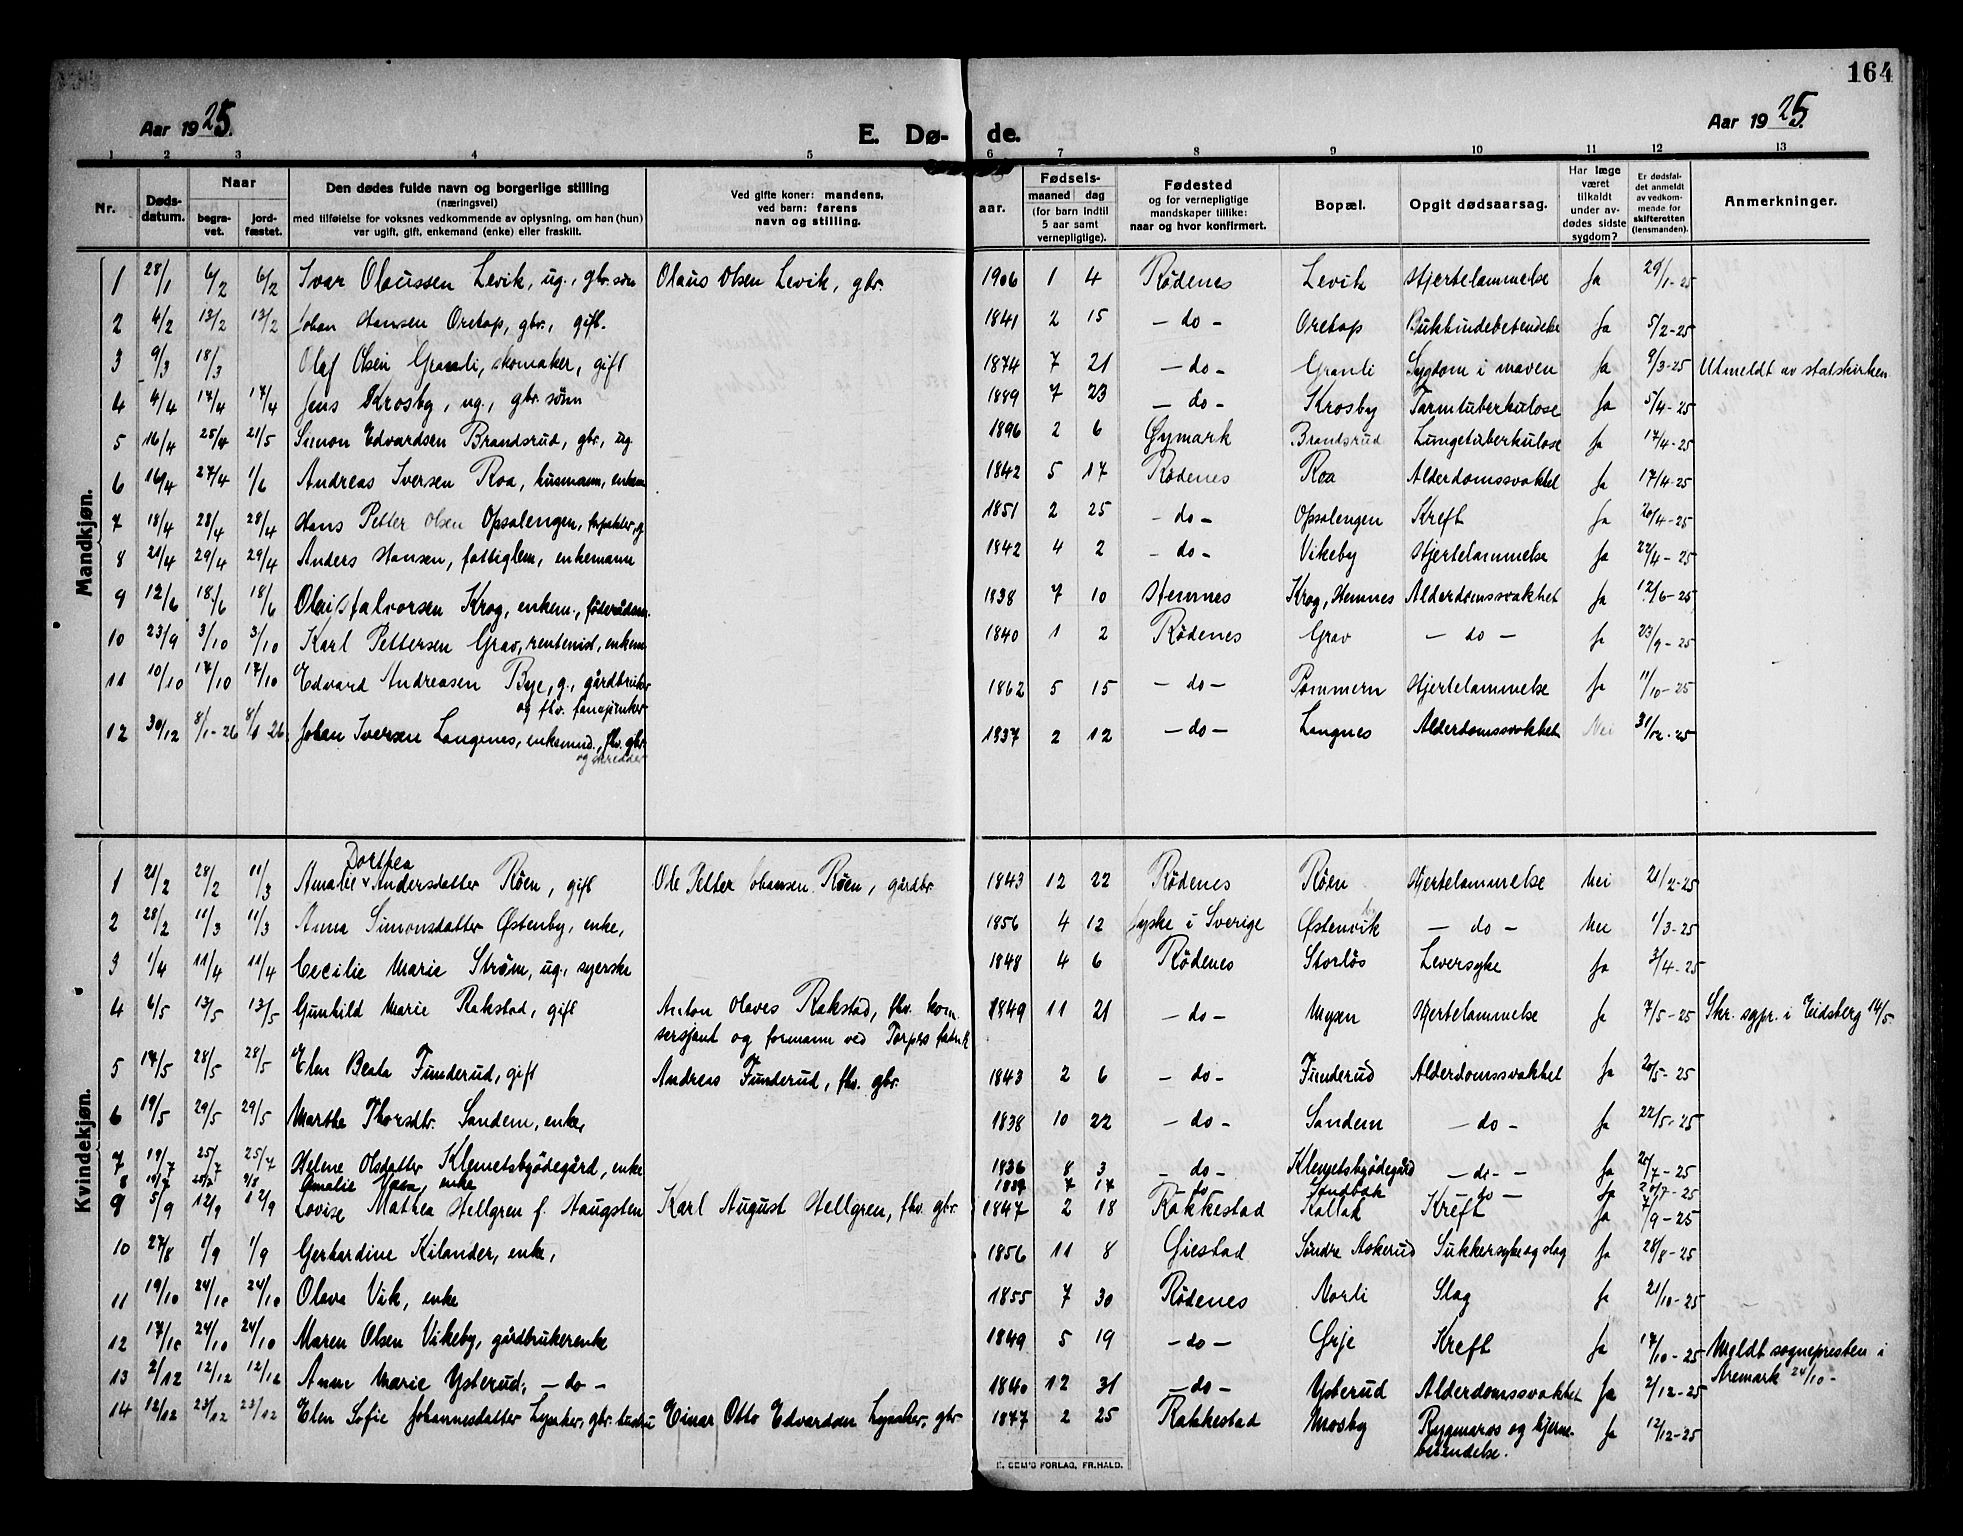 164
Aar 1925.
E. Dø-
de.
Aar 1925.
1 2 3 4 5 6 7 8 9 10 11 12 13
Nr.
Døds-
datum.
Naar
begra-
vet.
jord-
fæstet.
Den dødes fulde navn og borgerlige stilling
(næringsvei)
med tilføielse for voksnes vedkommende av oplysning, om han (hun)
var ugift, gift, enkemand (enke) eller fraskilt.
Ved gifte koner: mandens,
ved barn: farens
navn og stilling.
Fødsels-
aar.
maaned dag
(for barn indtil
5 aar samt
vernepligtige).
Fødested
og for vernepligtige
mandskaper tillike:
naar og hvor konfirmert.
Bopæl.
Opgit dødsaarsag.
Har læge
været
tilkaldt
under av-
dødes sidste
sygdom?
Er dødsfal-
det anmeldt
av vedkom-
mende for
skifteretten
(lensmanden).
Anmerkninger.
Mandkjøn.
1 28/1 6/2 6/2 Ivar Olaussen Levik, ug., gbr. søn Olaus Olsen Levik, gbr. 1906 1 4 Rødenes Levik Hjertelammelse Ja 29/1-25
2 4/2 13/2 13/2 Johan Hansen Oretop, gbr., gift. 1841 2 15 - do - Oretop Bukhindebetendelse Ja 5/2-25
3 9/3 18/3 Olaf Olsen Granli, skomaker, gift 1874 7 21 - do - Granli Sygdom i maven Ja 9/3-25 Utmeldt av statskirken
4 4/4 17/4 17/4 Jens Krosby, ug., gbr. sønn 1889 7 23 - do - Krosby Tarmtuberkulose Ja 5/4-25
5 16/4 25/4 21/5 Simon Edvardsen Brandsrud, gbr, ug 1896 2 6 Øymark Brandsrud Lungetuberkulose Ja 17/4-25
6 16/4 27/4 1/6 Andreas Iversen Roa, husmann, enkem 1842 5 17 Rødenes Roa Alderdomssvakhet Ja 17/4-25
7 18/4 28/4 28/4 Hans Petter Olsen Opsalengen, forpakter, g. 1851 2 25 - do - Opsalengen Kreft Ja 20/4-25
8 21/4 29/4 29/4 Anders Hansen, fattiglem, enkemann 1842 4 2 - do - Vikeby Hjertelammelse Ja 22/4-25
9 12/6 18/6 18/6 Olais Halvorsen Krog, enkem., føderådsm. 1838 7 10 Hemnes Krog, Hemnes Alderdomssvakhet Ja 12/6-25
10 23/9 3/10 3/10 Karl Pettersen Grav, rentenist, enkem 1840 1 2 Rødenes Grav - do - Ja 23/9-25
11 10/10 17/10 17/10 Edvard Andreasen Bye, g., gårdbruker 1862 5 15 - do - Pommern Hjertelammelse Ja 11/10-25
og fhv. fanejunker
12 30/12 8/1-26 8/1 26 Johan Iversen Langenes, enkemnd., fhv. gbr. 1837 2 12 - do - Langnes Alderdomssvakhet Nei 31/12-25
og skredder
Kvindekjøn.
Dorthea
1 21/2 28/2 11/3 Amalie v Andersdatter Røen, gift Ole Petter Johansen Røen, gårdbr. 1843 12 22 Rødenes Røen Hjertelammelse Nei 21/2-25
2 28/2 11/3 11/3 Anna Simonsdatter Østenby, enke, 1856 4 12 i Sverige Østenvik - do - Nei 1/3-25
3 1/4 11/4 11/4 Cecilie Marie Strøm, ug., syerske 1848 4 6 Rødenes Storløs Leversyke Ja 3/4-25
4 6/5 13/5 13/5 Gunhild Marie Rakstad, gift Anton Olaves Rakstad, fhv. kom- 1849 11 21 - do - Mysen Hjertelammelse Ja 7/5-25 Skr. sgpr. i Eidsberg 14/5.
sersjant og formann ved Torps fabrik
5 17/5 28/5 28/5 Elen Beate Funderud, gift Andreas Funderud, fhv. gbr. 1843 2 6 - do - Funderud Alderdomssvakhet Ja 20/5-25
6 19/5 29/5 29/5 Marthe Thorsdtr. Sandem, enke, 1838 10 22 - do - Sandem - do - Ja 22/5-25
7 19/7 25/7 25/7 Helene Olsdatter Klemetsbyødegård, enke 1836 8 3 - do - Klemetsbyødegård - do - - Ja 20/7-25
8 Amalie enke 7 17 - do - Sandbæk - do - Ja 20/7-25
9 5/9 12/9 12/9 Lovise Mathea Hellgren f. Haugsten Karl August Hellgren, fhv. gbr. 1847 2 18 Rakkestad Kallak Kreft Ja 7/9-25
10 27/8 1/9 1/9 Gerhardine Kilander, enke, 1856 11 8 Giestad Søndre Askerud Sukkersyke og slag Ja 28/8-25
11 19/10 24/10 24/10 Olava Vik, enke 1855 7 30 Rødenes Norli Slag Ja 21/10-25
12 17/10 24/10 24/10 Maren Olsen Vikeby, gårdbrukerenke 1849 5 19 - do - Ørje Kreft Ja 17/10-25 Meldt sognepresten i
Aremark 24/10-
13 2/12 12/12 12/12 Anne Marie Ysterud, - do - 1840 12 31 - do - Ysterud Alderdomssvakhet Ja 2/12-25
14 12/12 23/12 23/12 Elen Sofie Johannesdatter Lysaker, gbr. hustru Einar Otto Edvardsen Lysaker, gbr. 1877 2 25 Rakkestad Mosby Rygmargs og hjerne- Ja 12/12-25
betendelse.
FORLAG, FR.HALD.